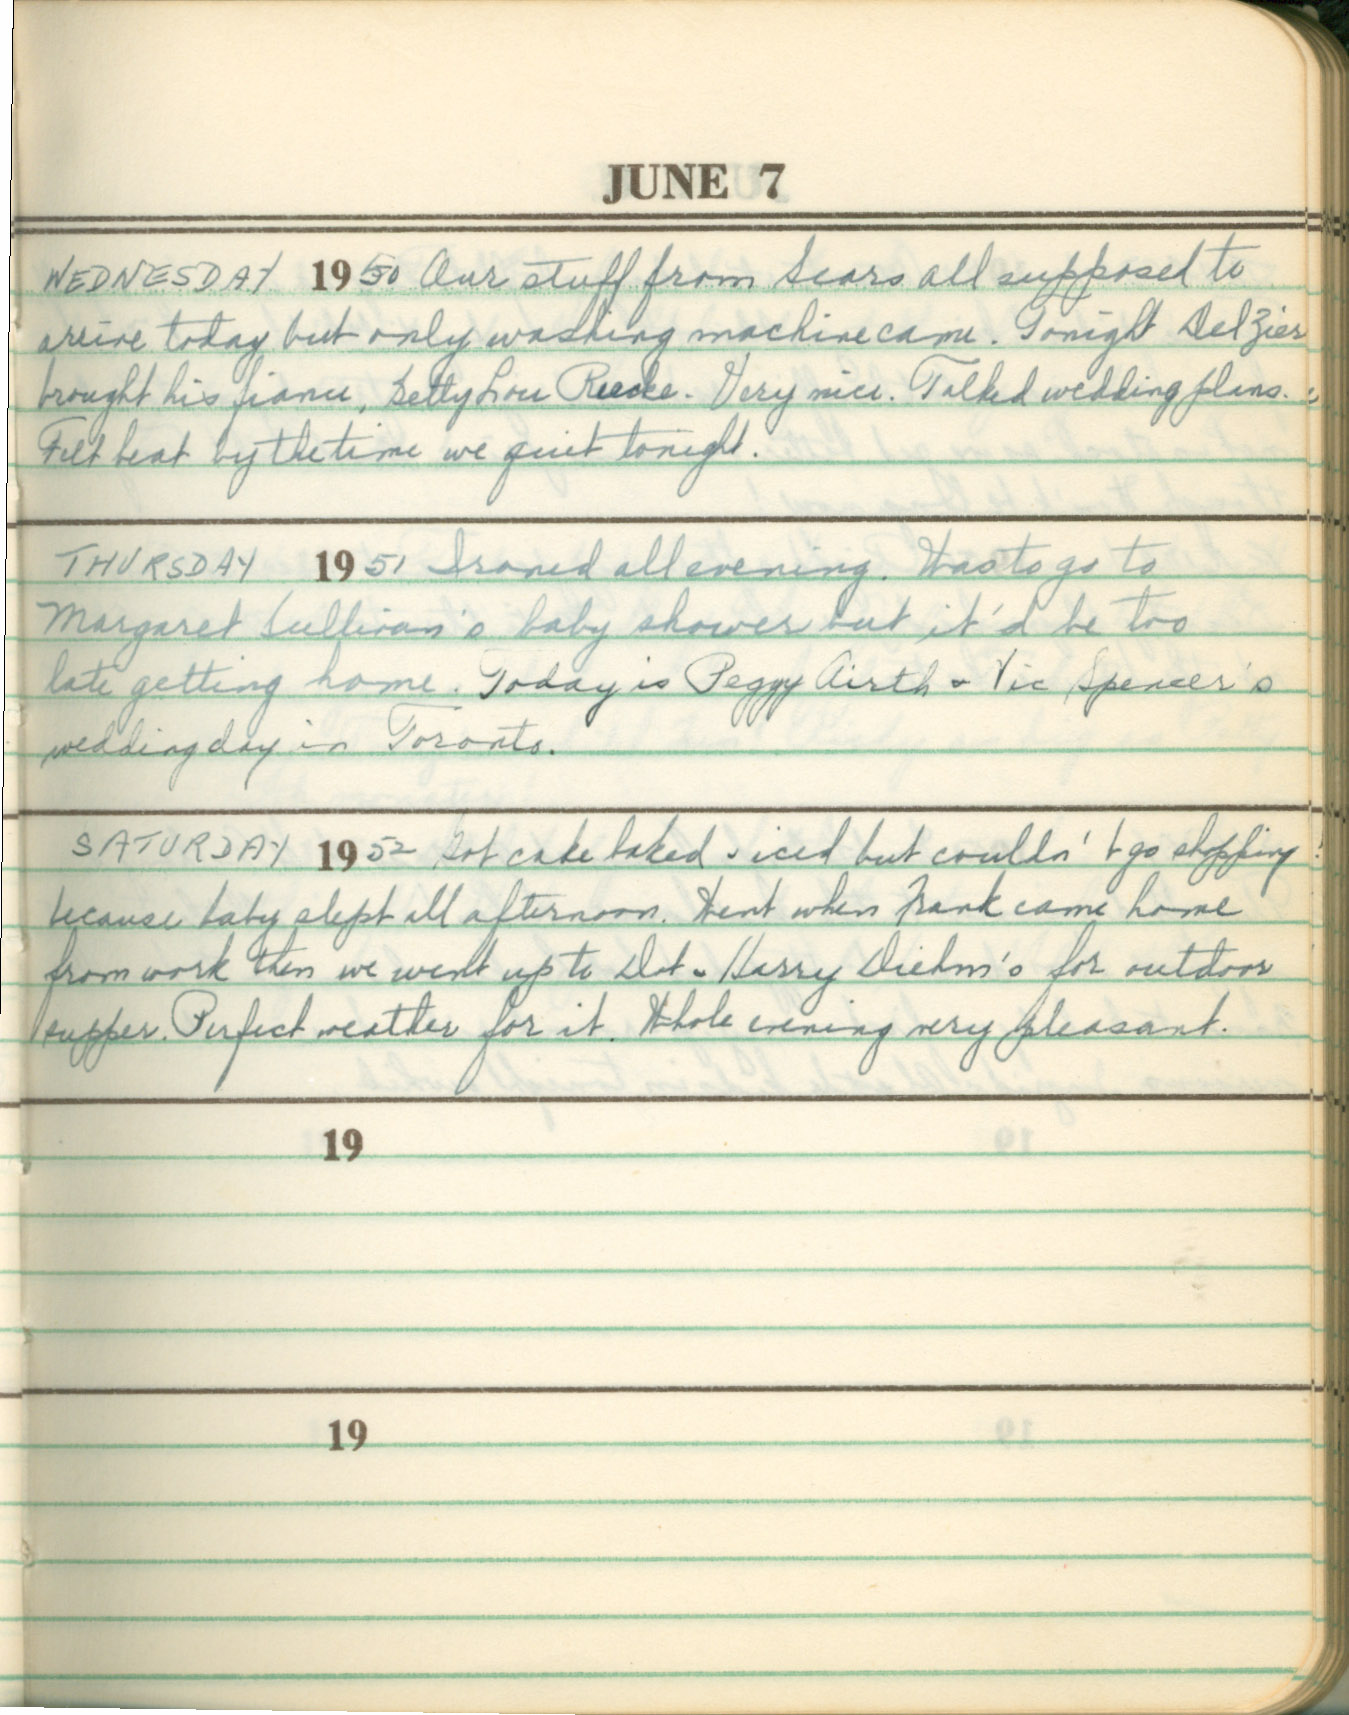 JUNE 7
WEDNESDAY 1950 Our stuff from Sears all supposed to
arrive today but only washing machine came. Tonight Del Zier
brought his fiance, Betty Lou Reecke. Very nice. Talked wedding plans.
Felt beat by the time we quit tonight.
THURSDAY 1951 Ironed all evening. Was to go to
Margaret Sullivan's baby shower but it'd be too
late getting home. Today is Peggy Airth & Vic Spencer's
wedding day in Toronto.
SATURDAY 1952 Got cake baked & iced but couldn't go shopping
because baby slept all afternoon. Went when Frank came home
from work then we went up to Dot & Harry Diehm's for outdoor
supper. Perfect weather for it. Whole evening very pleasant.
19
19